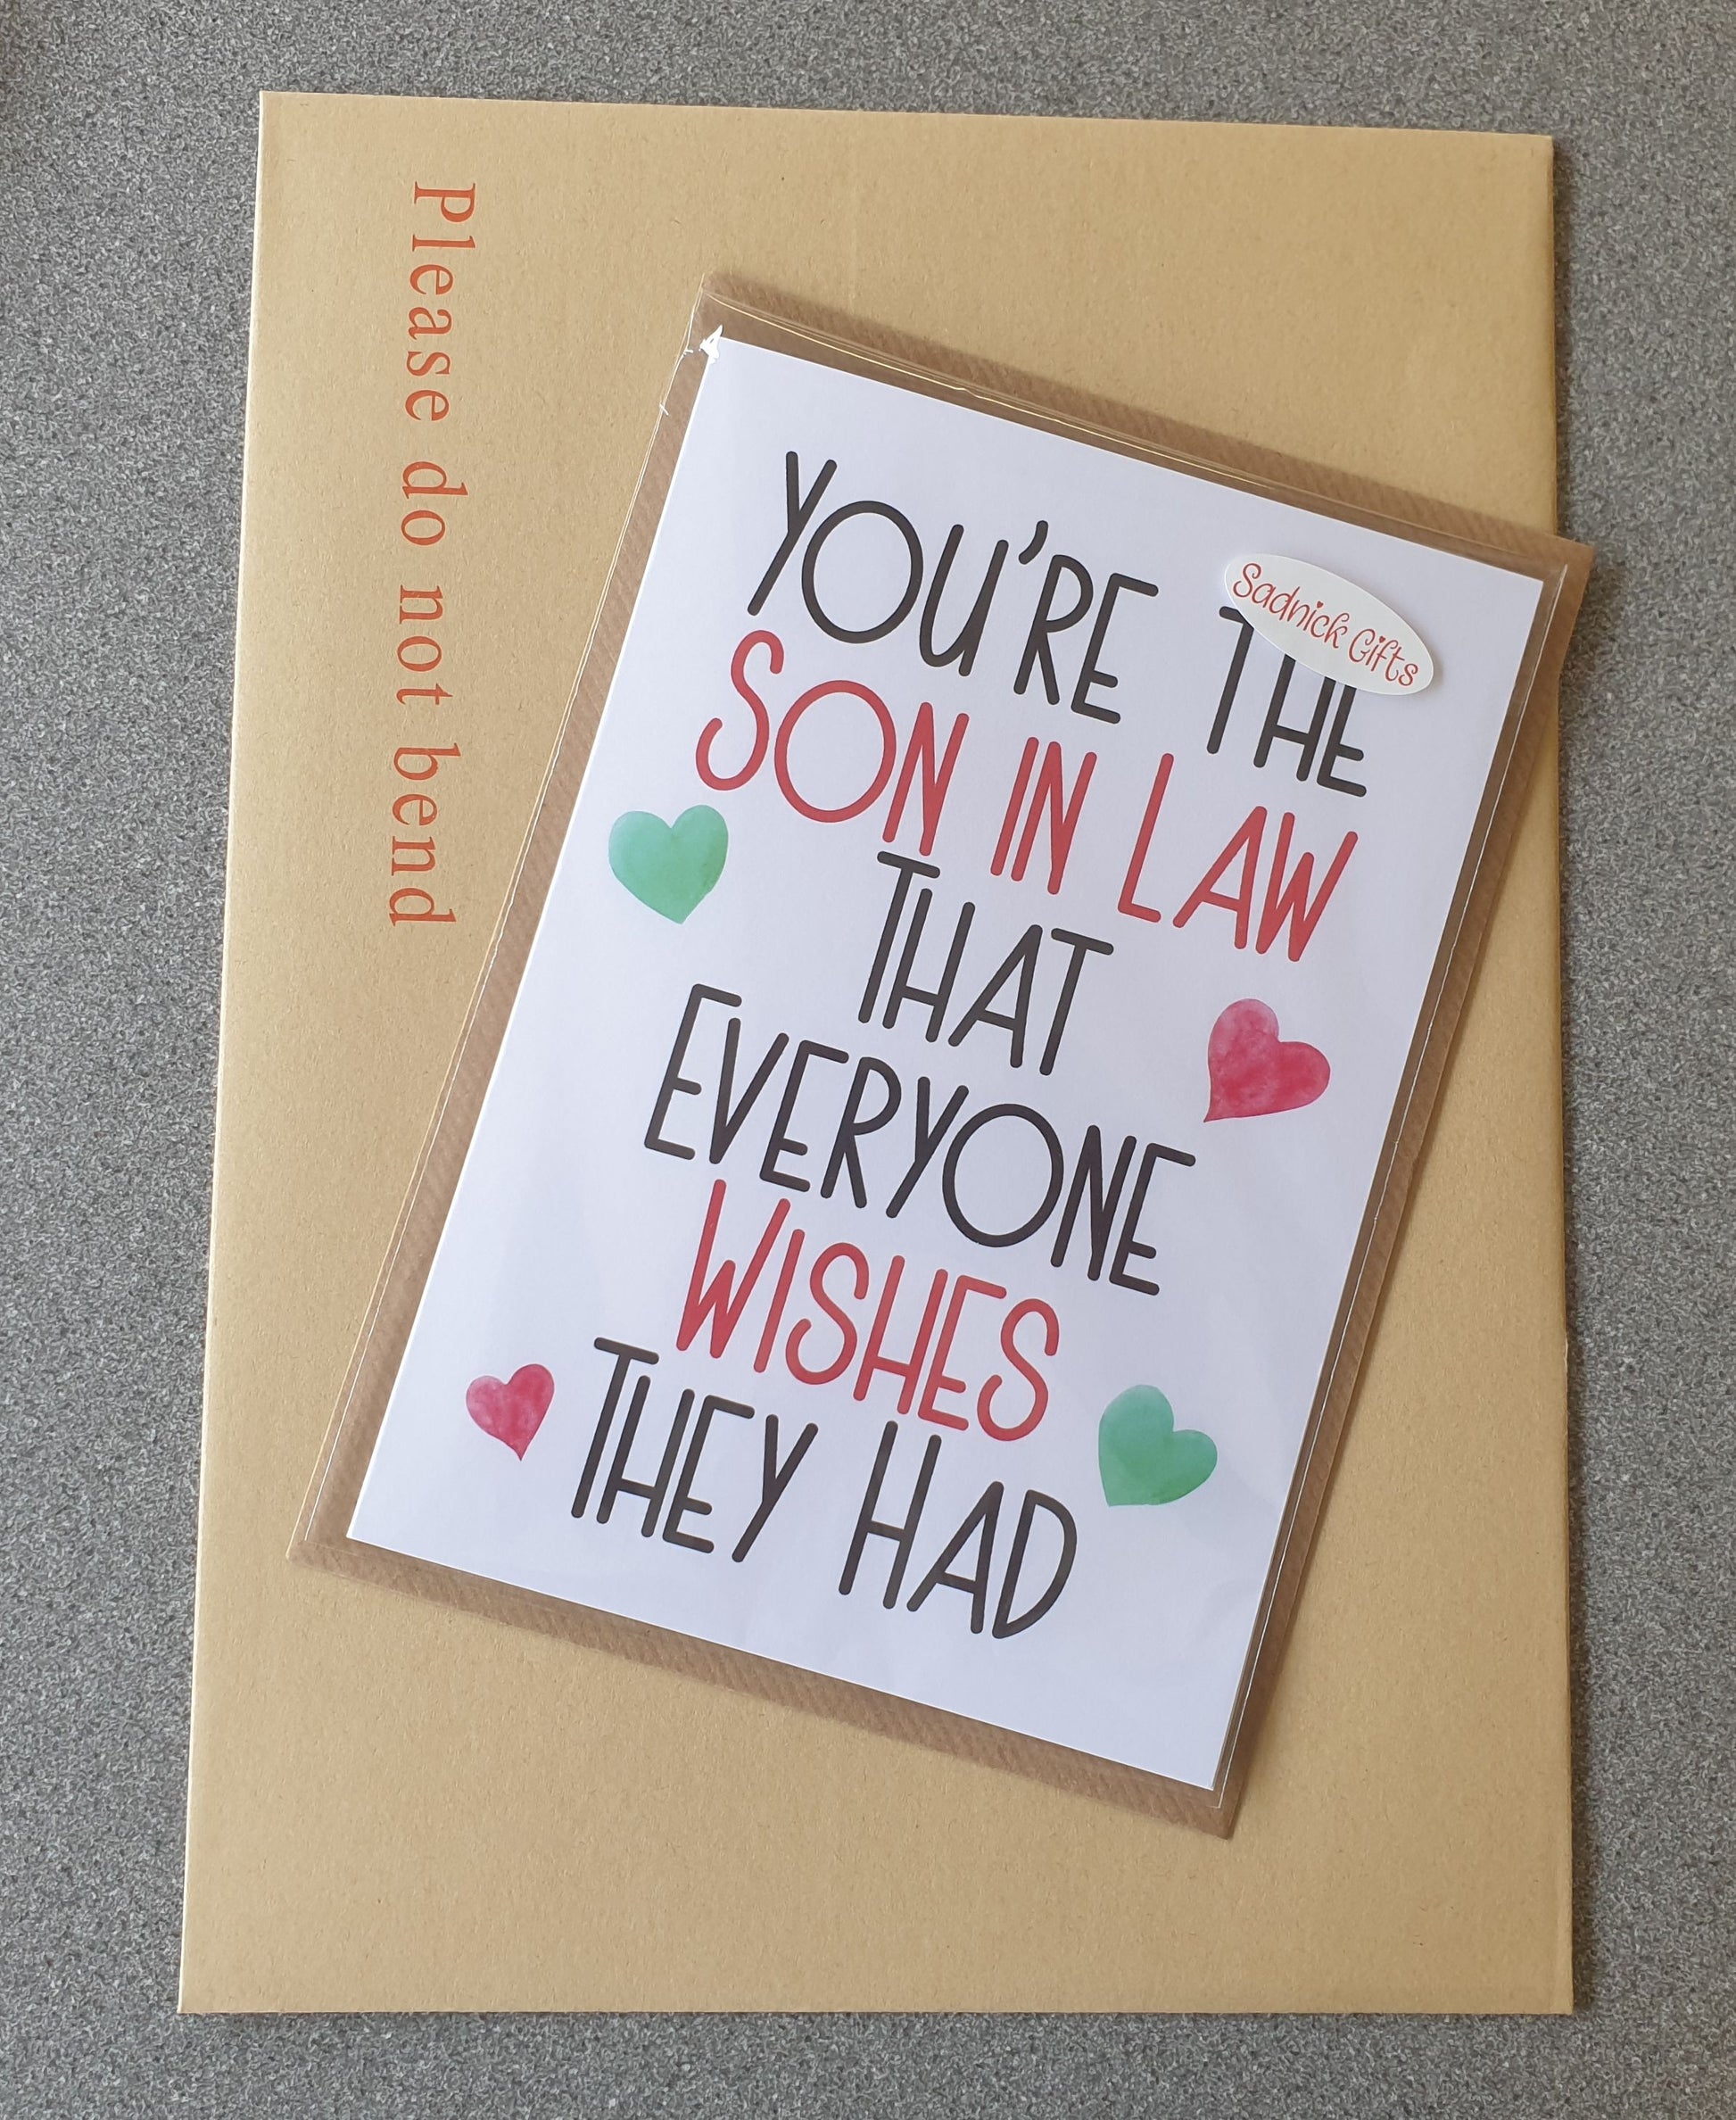 Please do not bend
Sadnick Gifts
YOU'RE THE
SON IN LAW
THAT
EVERYONE
WISHES
THEY HAD